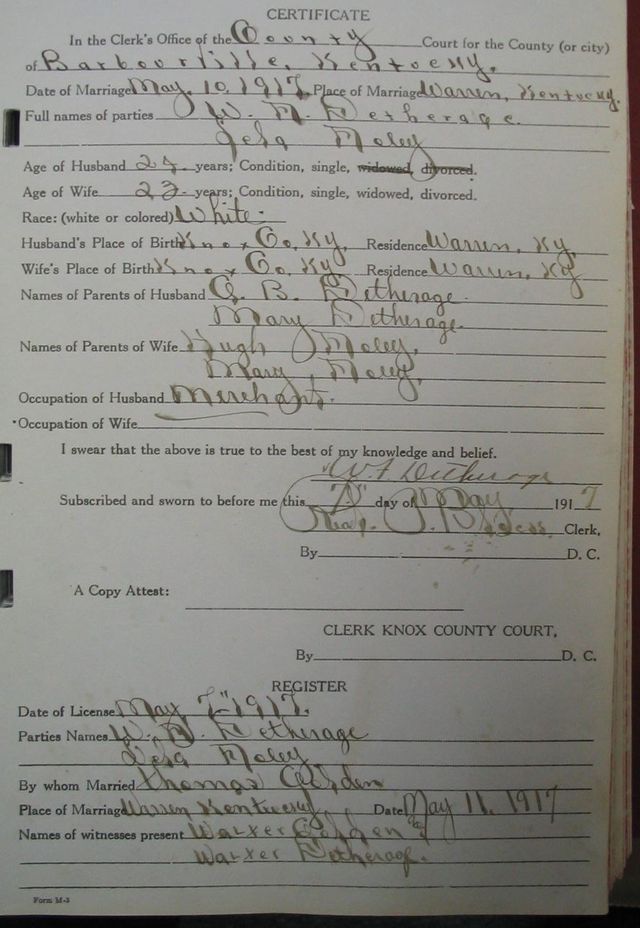 CERTIFICATE
In the Clerk's Office of the County Court for the County (or city)
of Barbourville, Kentucky.
Date of Marriage May, 10, 1917. Place of Marriage Warren, Kentucky.
Full names of parties W. Detherage.
Foley
Age of Husband years; Condition, single, widowed, divorced.
Age of Wife 23 years; Condition, single, widowed, divorced.
Race: (white or colored) White
Husband's Place of Birth Knox Co, Ky, Residence Warren, Ky
Wife's Place of Birth Knox Co, Ky Residence Warren, Ky
Names of Parents of Husband B. Detherage.
Mary Detherage.
Names of Parents of Wife Hugh Foley,
Mary, Foley,
Occupation of Husband Merchant.
Occupation of Wife
I swear that the above is true to the best of my knowledge and belief.
Detherage
Subscribed and sworn to before me this 7" day of May 1917
Clerk,
By D. C.
A Copy Attest:
CLERK KNOX COUNTY COURT,
By D. C.
REGISTER
Date of License May, 7" 1917.
Parties Names W. Detherage
Foley
By whom Married Thomas
Place of Marriage Warren Kentucky Date May 11, 1917
Names of witnesses present Walter
Walter Detherage.
Form M-3